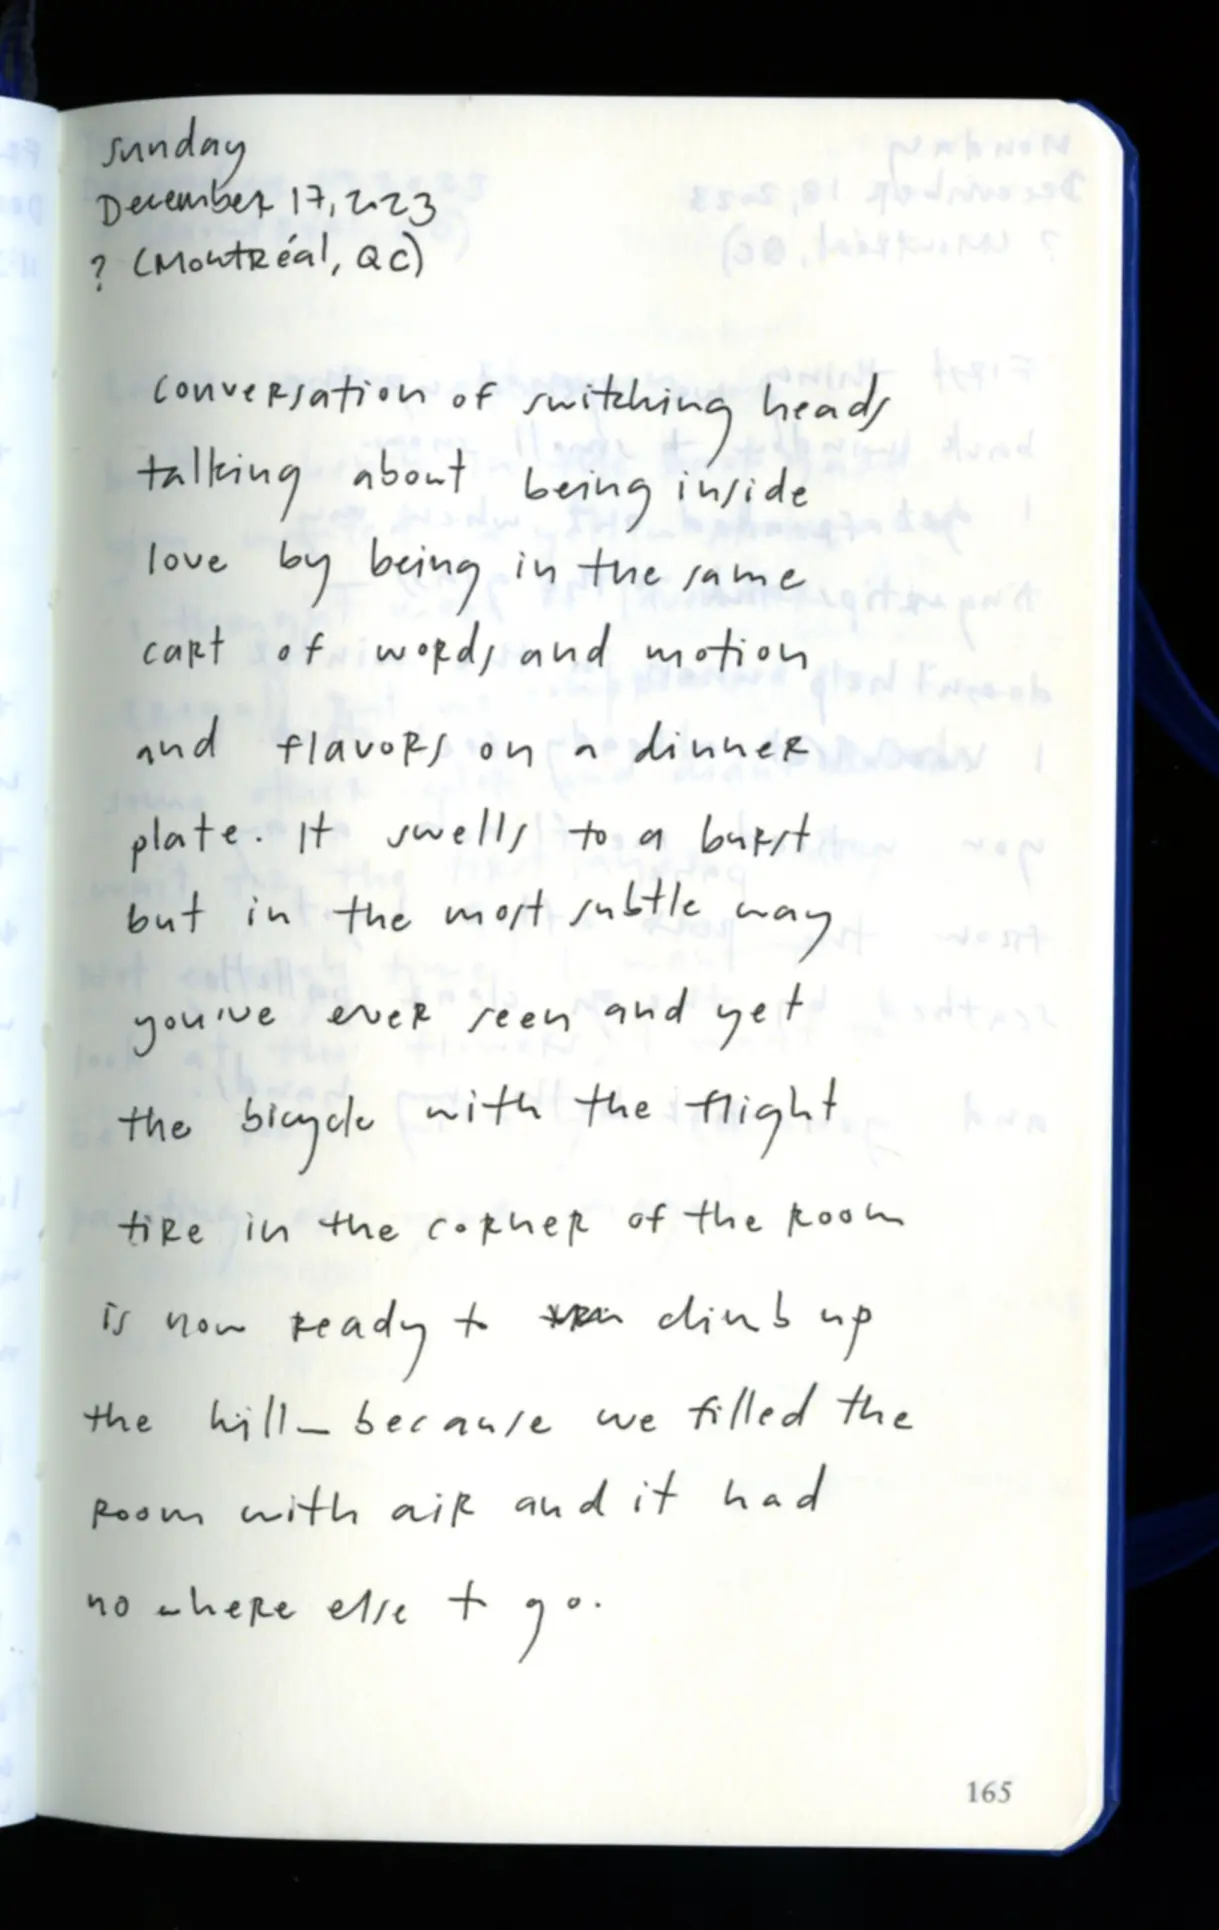 Sunday
December 17, 2023
? (Montréal, QC)
Conversation of switching heads
talking about being inside
love by being in the same
cart of words and motion
and flavors on a dinner
plate. It swells to a burst
but in the most subtle way
you've ever seen and yet
the bicycle with the flight
tire in the corner of the room
is now ready to climb up
the hill - because we filled the
room with air and it had
no where else to go.
165